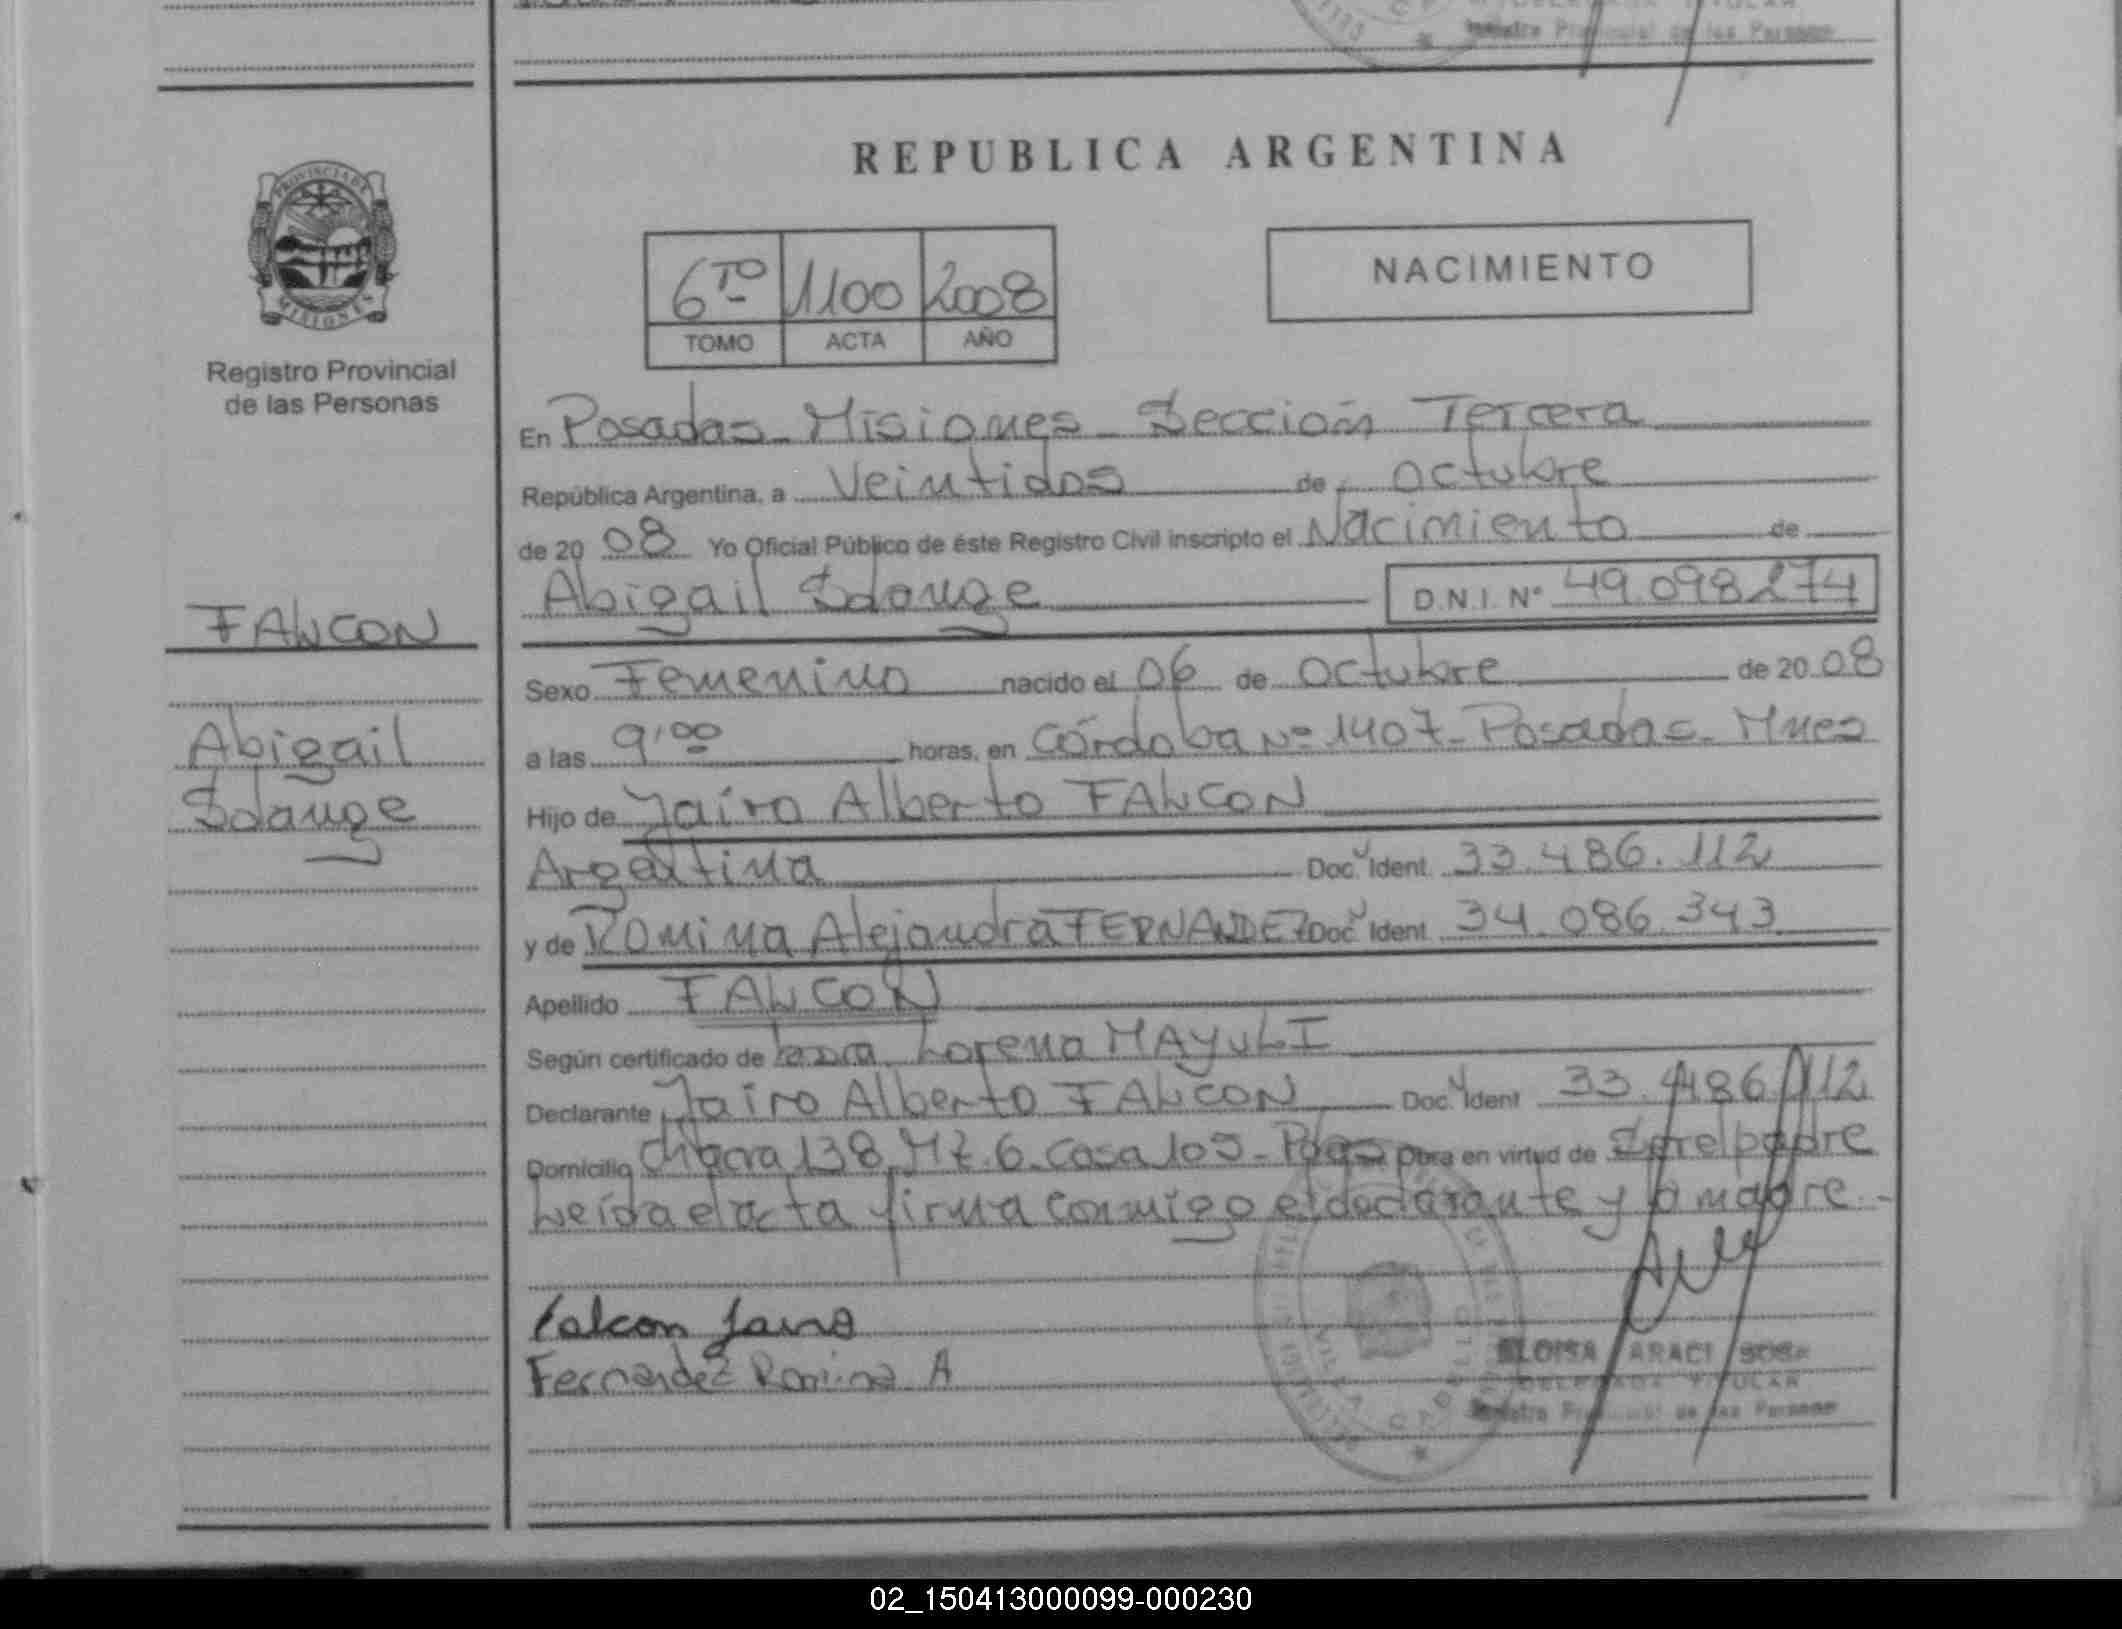 Registro Provincial de las Personas
REPUBLICA ARGENTINA
6TO 1100 2008
TOMO ACTA AÑO
NACIMIENTO
PROVINCIA DE
MISIONES
Registro Provincial
de las Personas
FALCON
Abigail
Solange
En Posadas - Misiones - Sección Tercera
República Argentina, a Veintidos de Octubre
de 20 08 Yo Oficial Público de éste Registro Civil inscripto el Nacimiento de
Abigail Solange D.N.I. Nº 49.098.274
Sexo Femenino nacido el 06 de Octubre de 20 08
a las 9'00 horas, en Córdoba Nº 1407 - Posadas - Mnes
Hijo de Jairo Alberto FALCON
Argentina Doc. Ident. 33.486.112
y de Romina Alejandra FERNANDEZ Doc. Ident. 34.086.343
Apellido FALCON
Según certificado de Lorena MAYULI
Declarante Jairo Alberto FALCON Doc. Ident. 33.486.112
Domicilio Chacra 138 Mz. 6 - Casa 109 - Pdas Obra en virtud de Ser el padre
Leída el acta firma conmigo el declarante y la madre.-
Falcon Jairo
Fernandez Romina A
ELOISA ARACI SOSA
DELEGADA TITULAR
Registro Provincial de las Personas
02_150413000099-000230